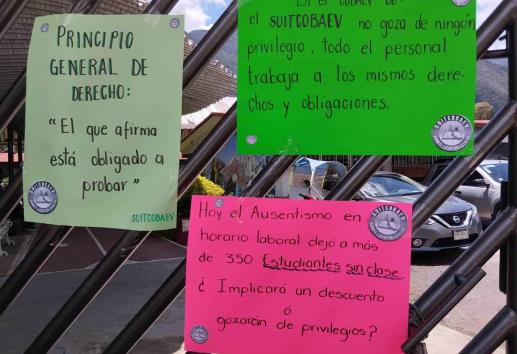 PRINCIPIO
GENERAL DE
DERECHO:
"El que afirma
está obligado a
probar"
SUITCOBAEV
En el COBAEV
el SUITCOBAEV no goza de ningún
privilegio, todo el personal
trabaja a los mismos dere-
chos y obligaciones.
SUITCOBAEV
Hoy el Ausentismo en
horario laboral dejó a más
de 350 Estudiantes sin clase
¿ Implicará un descuento
ó
gozarán de privilegios?